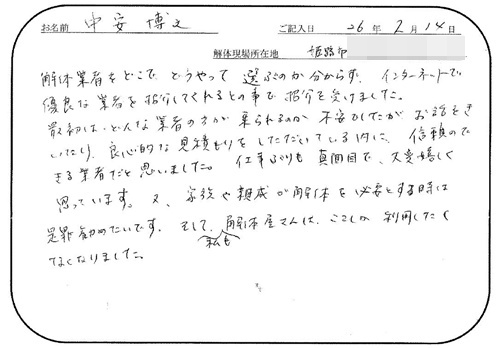 お名前 中安 博之 ご記入日 26年2月14日
解体現場所在地 姫路市
解体業者をどこで、どうやって 選ぶのか分からず、インターネットで
優良な業者を紹介してくれるとの事で紹介を受けました。
最初は、どんな業者の方が来られるのか 不安でしたが お話をき
いたり、良心的な見積もりをしていただいている内に、信頼ので
きる業者だと思いました。 仕事ぶりも 真面目で、大変嬉しく
思っています。又、家族や親戚が解体を必要とする時は
是非勧めたいです。そして、解体屋さんは、ここしか 利用したく
私も
なくなりました。